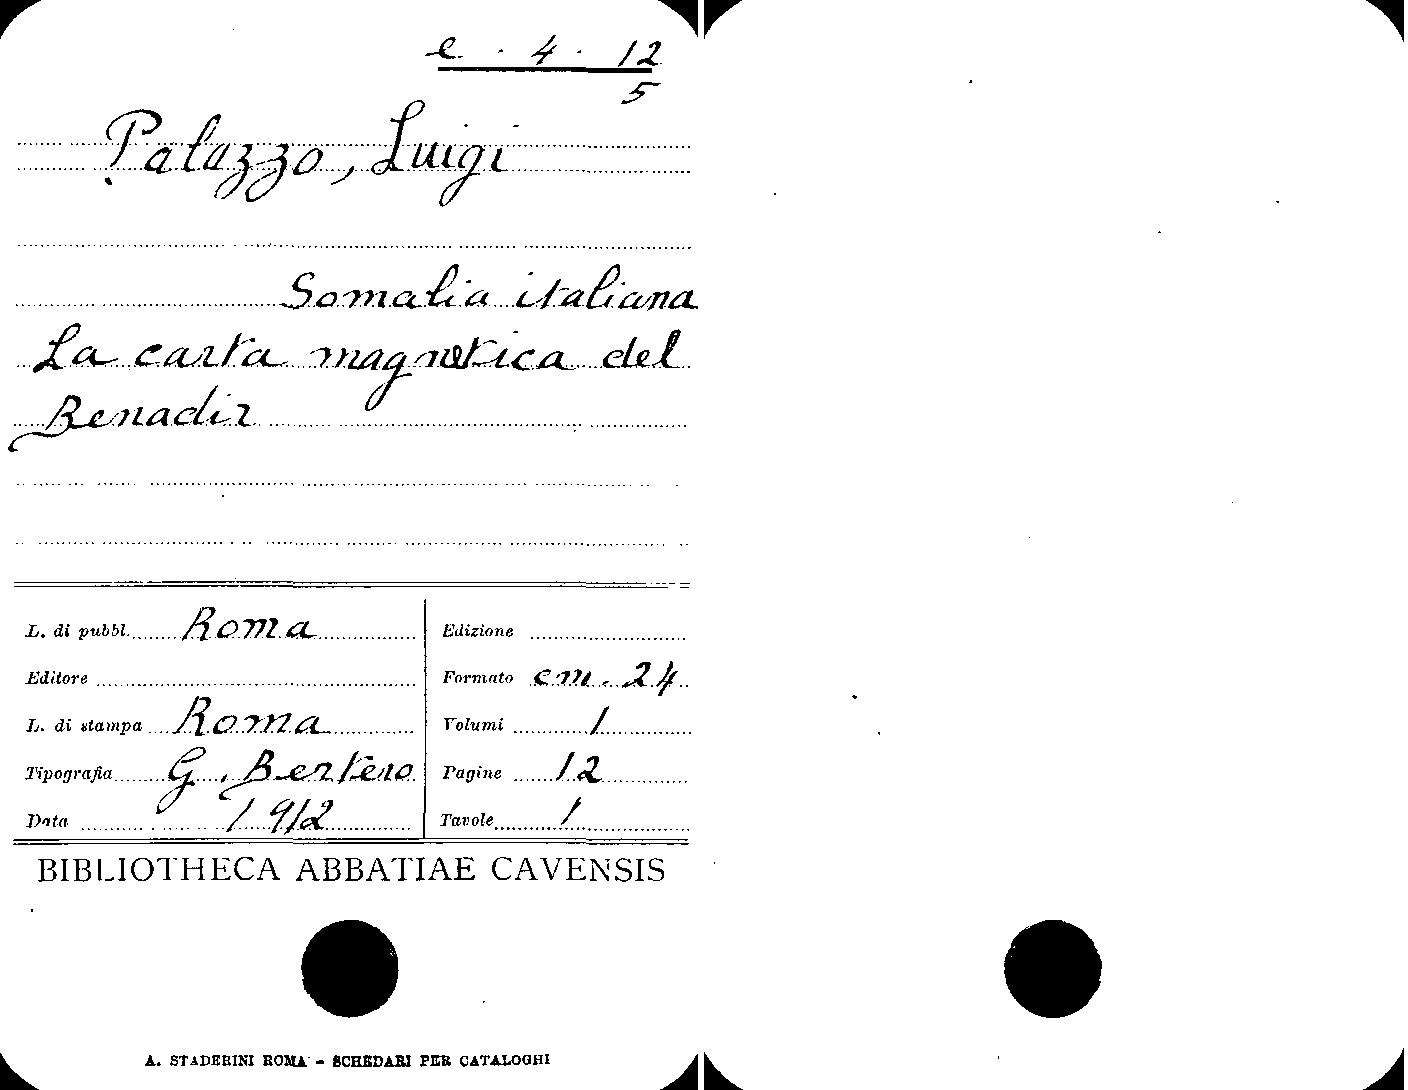 e . 4 . 12
5
Palazzo, Luigi
Somalia italiana
La carta magnetica del
Benadir
L. di pubbl. Roma
Edizione
Editore
Formato cm. 24
L. di stampa Roma
Volumi 1
Tipografia G. Bertero
Pagine 12
Data 1912
Tavole 1
BIBLIOTHECA ABBATIAE CAVENSIS
A. STADERINI ROMA - SCHEDARI PER CATALOGHI